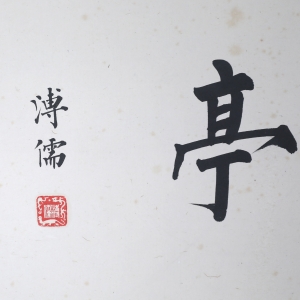 亭
溥儒